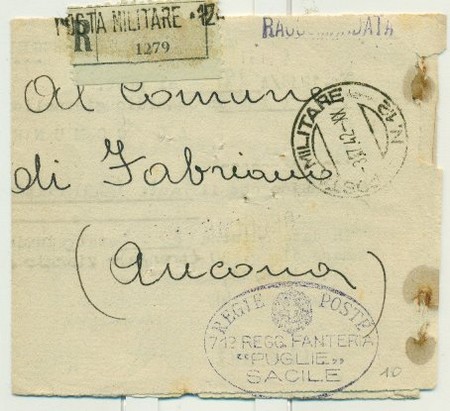 POSTA MILITARE
R
1279
RACCOMANDATA
Al Comune
di Fabriano
(Ancona)
POSTA MILITARE N.43
-3.7.42-XX
REGIE POSTE
71º REGG. FANTERIA
"PUGLIE"
SACILE
10